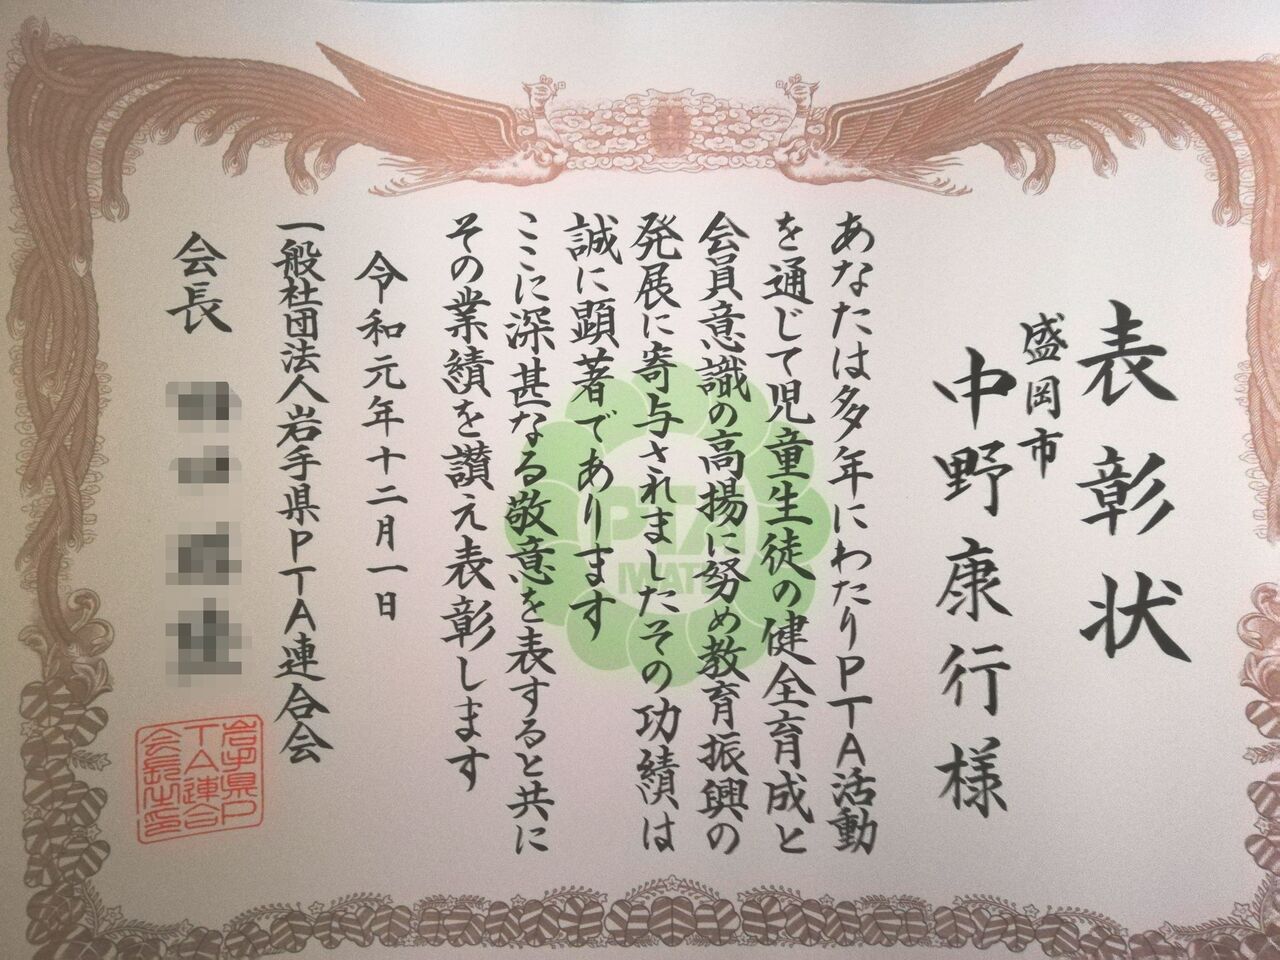 表彰状
盛岡市
中野康行様
あなたは多年にわたりPTA活動
を通じて児童生徒の健全育成と
会員意識の高揚に努め教育振興の
発展に寄与されましたその功績は
誠に顕著であります
ここに深甚なる敬意を表すると共に
その業績を讃え表彰します
令和元年十二月一日
一般社団法人岩手県PTA連合会
会長
岩手県P
TA連合
会長之印
PTA
IWATE